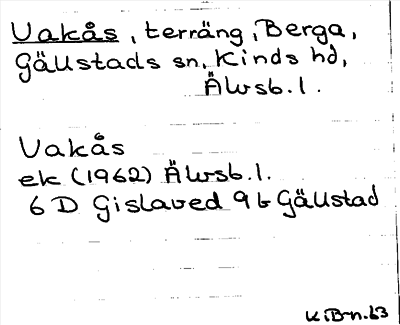 Vakås, terräng, Berga,
Gällstads sn, Kinds hd,
Älvsb. l.
Vakås
ek (1962) Älvsb. l.
6 D Gislaved 9 b Gällstad
K.B-n. 63